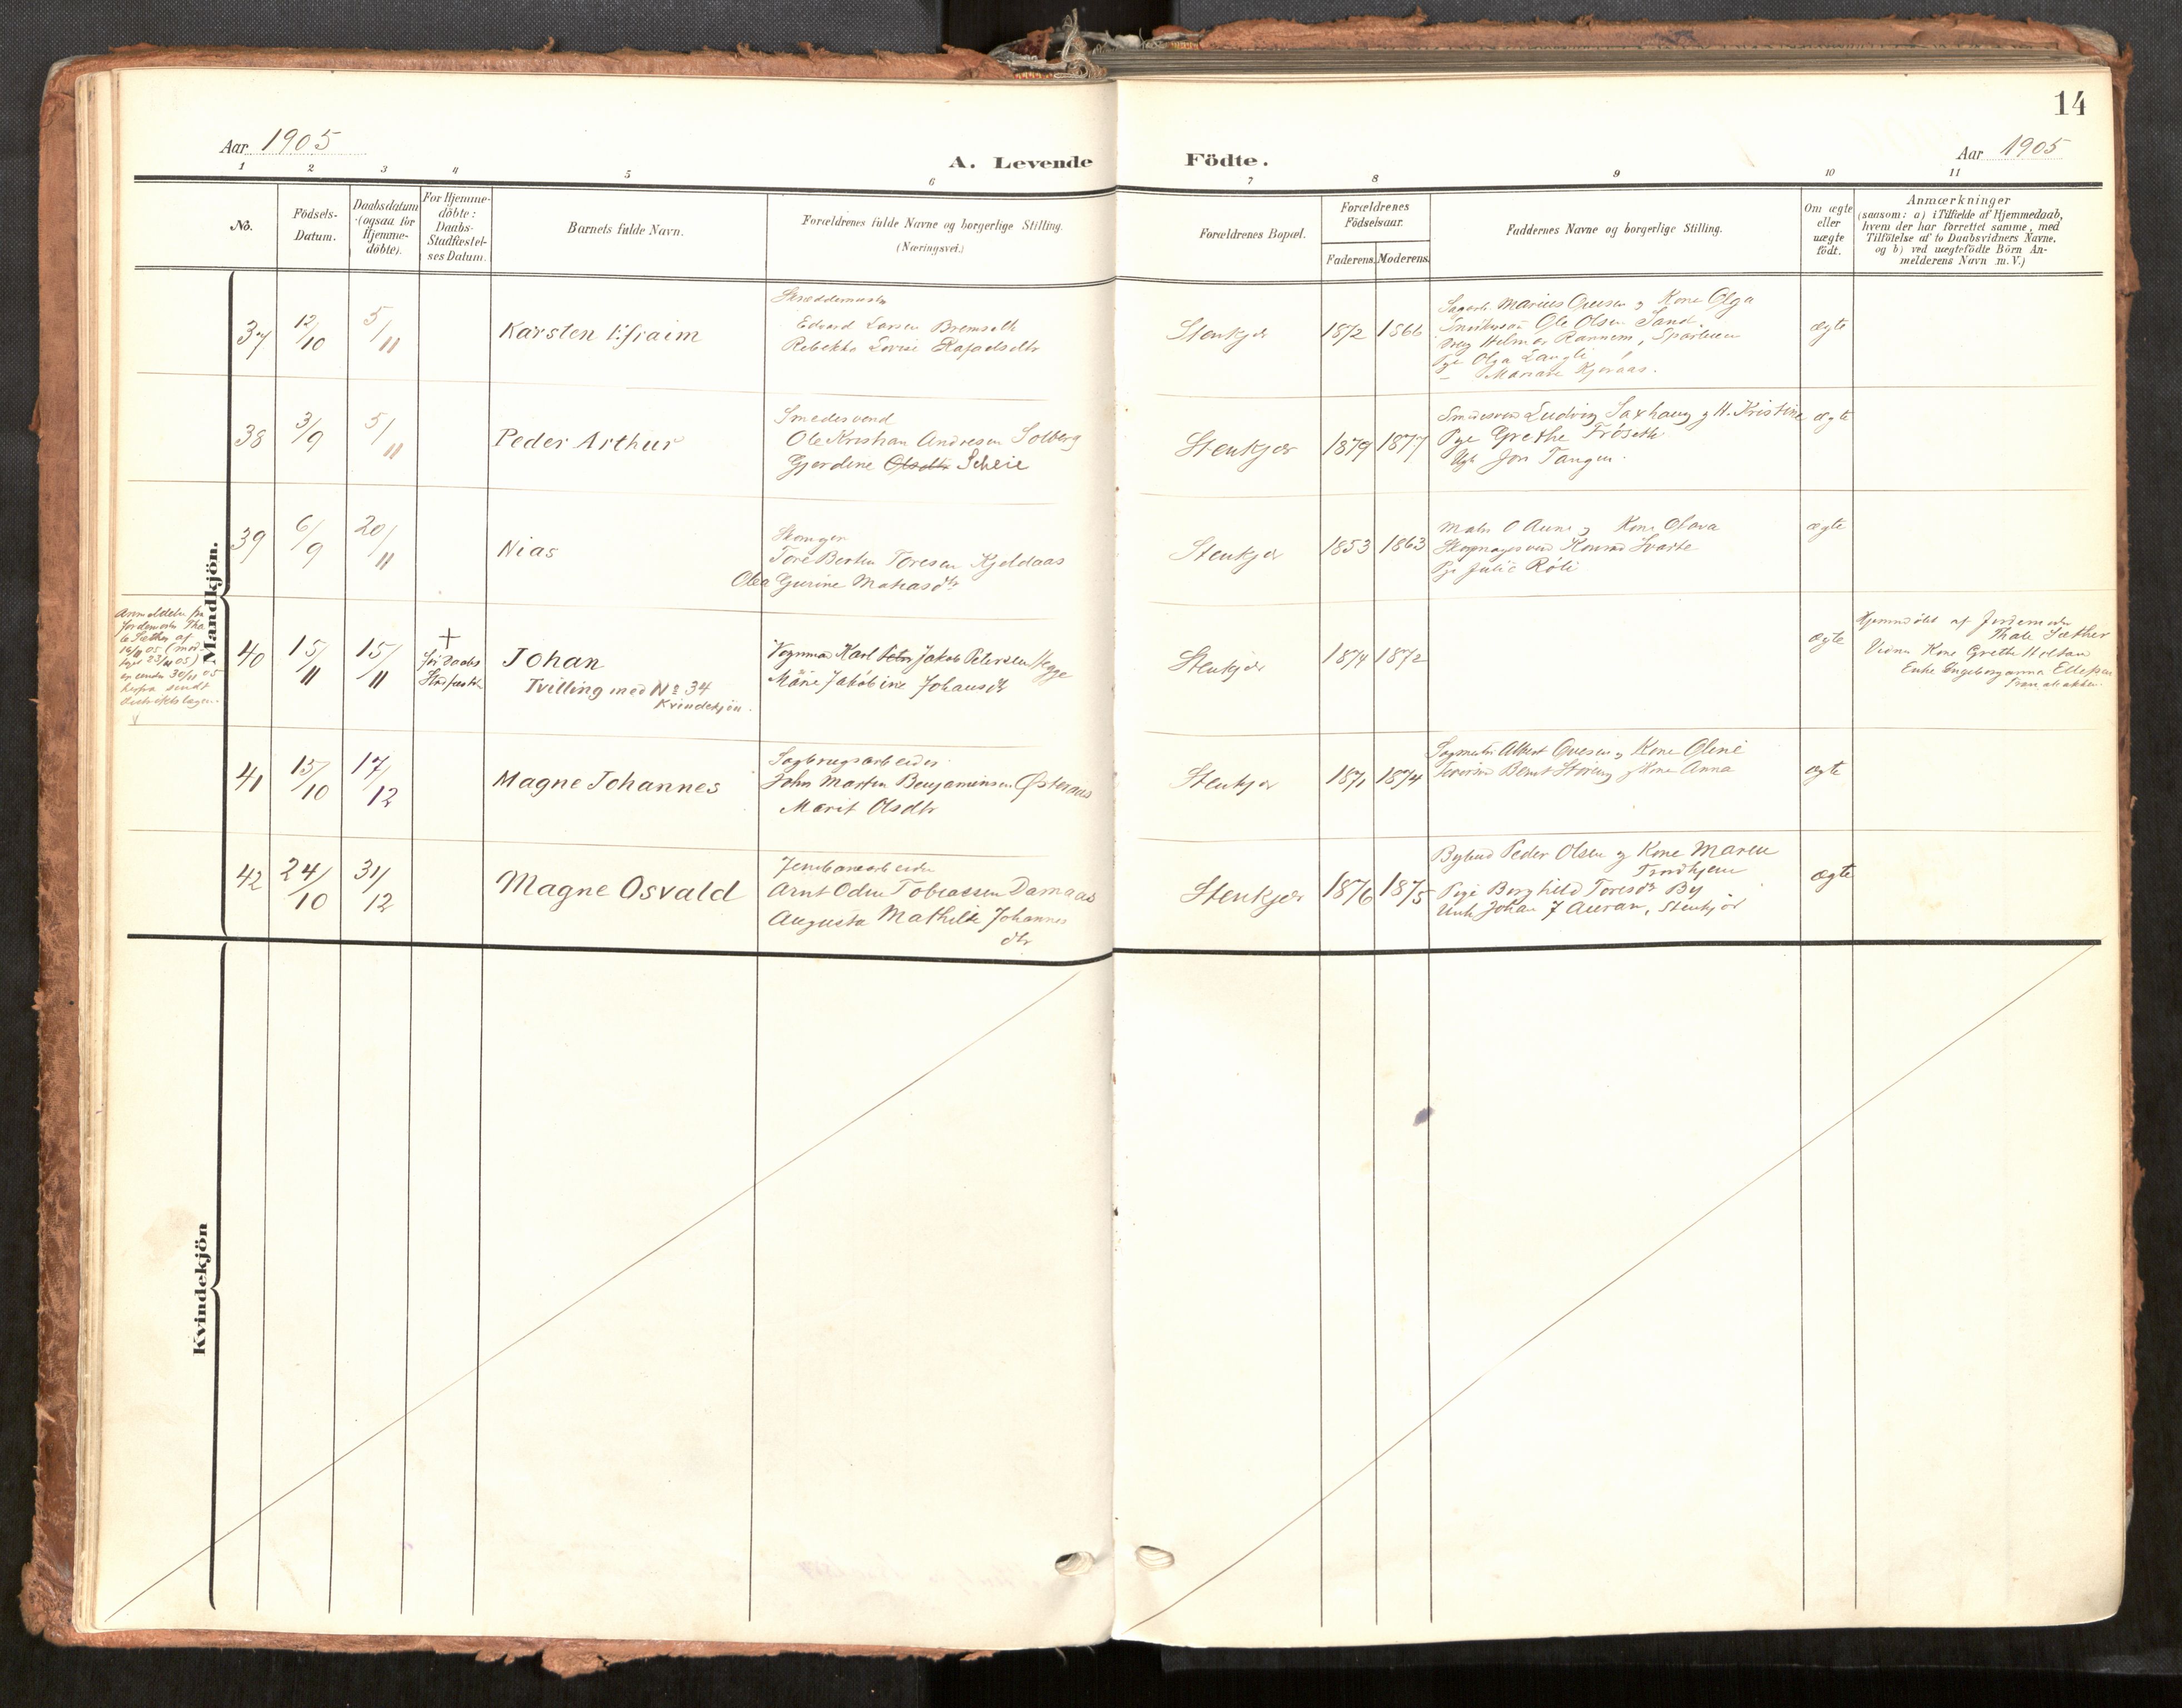 14
Aar 1905
A. Levende Födte.
Aar 1905
1 2 3 4 5 6 7 8 9 10 11
No.
Födsels-
Datum.
Daabsdatum
(ogsaa for
Hjemme-
döbte).
For Hjemme-
döbte:
Daabs-
Stadfæstel-
ses Datum.
Barnets fulde Navn.
Forældrenes fulde Navne og borgerlige Stilling.
(Næringsvei.)
Forældrenes Bopæl.
Forældrenes
Födselsaar.
Faderens. Moderens.
Faddernes Navne og borgerlige Stilling.
Om ægte
eller
uægte
födt.
Anmærkninger
(saasom: a) i Tilfælde af Hjemmedaab,
hvem der har forrettet samme, med
Tilföielse af to Daabsvidners Navne,
og b) ved uægtefödte Börn An-
melderens Navn m. V.)
Mandkjön.
37
12/10
5/11
Karsten Efraim
Skræddermester
Edvard Larsen Bremseth
Rebekka Lovise
Stenkjær
1872 1866
Marius Ovesen og Kone Olga
Ole Olsen Sand.
Helmer Rannem, Sparbuen
Pge Olga Langli
ægte
38
3/9
5/11
Peder Arthur
Smedesvend
Ole Kristian Andresen Solberg
Gjerdine Olsdtr Scheie
Stenkjær
1879 1877
Smedesvend Ludvig Saxhaug og H. Kristine
Pge Grethe Fröseth
Ugk Jon Tangen.
ægte
39
6/9
20/11
Nias
Tore Berten Toresen Kjeldaas
Olea Gurine Matiasdtr
Stenkjær
1853 1863
Maler O Aune og Kone Olava
Konrad Svarte
Pge Julie
ægte
Anmeldelse fra
Jordemoder Tha
le Sæther af
16/11 05 (mod-
taget 23/11 05)
30/11 05
herfra sendt
Distriktslægen.
40
15/11
15/11
+
för Daabs
Stadfæstelse
Johan
Tvilling med No 34
Kvindekjön.
Vognmd Karl Peter Jakob Petersen Hegge
Marie Jakobine Johansdtr
Stenkjær
1874 1872
ægte
Hjemmedöbt af Jordemoder
Thale Sæther
Vidner Kone Grethe Holtan
Enke Ingeborganna Ellefsen
41
15/10
17/12
Magne Johannes
Sagbrugsarbeider
John Martin Benjaminsen Österaas
Marit Olsdtr
Stenkjær
1871 1874
Sagmester Albert Ovesen og Kone Oline
Bernt Störing og Kone Anna
ægte
42
24/10
31/12
Magne Osvald
Jernbanearbeider
Arnt Odin Tobiassen Damaas
Augusta Mathilde Johannes
dtr
Stenkjær
1876 1875
Bybud Peder Olsen og Kone Maren
Trondhjem
Pige Borghild Toresdr By
Unk Johan J Auran, Stenkjær
ægte
Kvindekjön